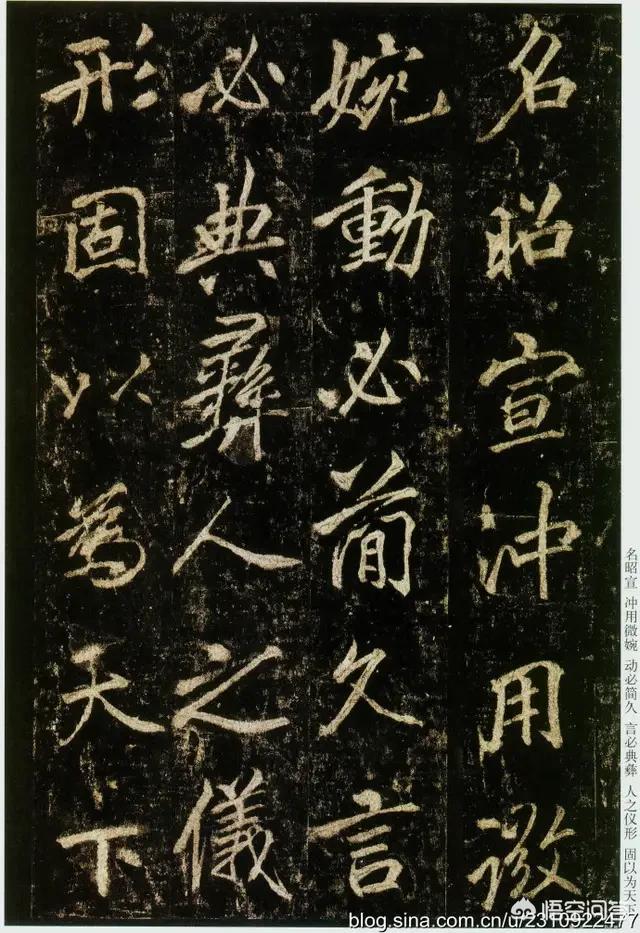 名昭宣沖用微
婉動必簡久言
必典彝人之儀
形固以為天下
名昭宣 冲用微婉 动必简久 言必典彝 人之仪形 固以为天下
悟空问答
blog.sina.com.cn/u/2310922477